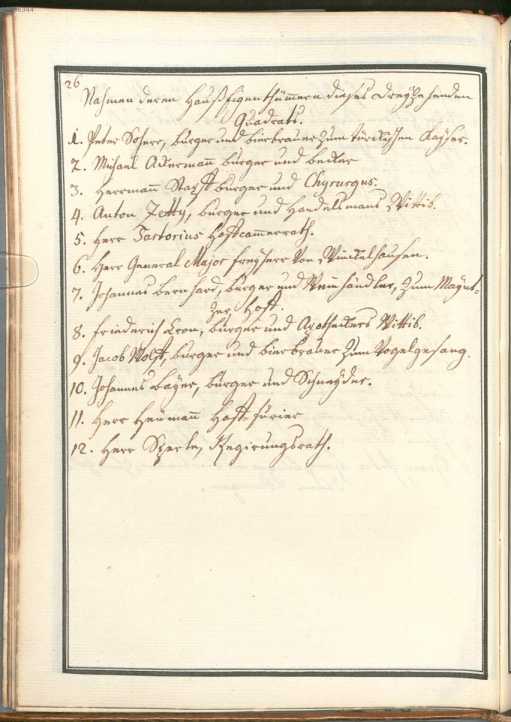 26
Nahmen deren Hauß Eigenthümmern dieses dreyzehenden
Quadrats.
1. Peter Soherr, bürger und bierbrauer zum türckischen Kayser.
2. Michael Ackermañ bürger und becker
3. Herrmañ bürger und Chyrurgus.
4. Anton Zetty, bürger und Handelsmans Wittib.
5. Herr Sartorius Hoffcammerrath.
6. Herr General Major freyherr von
7. Johannes Bernhard, bürger und Weinhändler, zum Maynt-
zer Hoff.
8. Friederich Leon, bürger und Apotheckers Wittib.
9. Jacob Wolff, bürger und bierbrauer zum Vogelgesang.
10. Johannes Bayer, bürger und Schneyder.
11. Herr Heümañ Hoff fürier
12. Herr Regierungsrath.